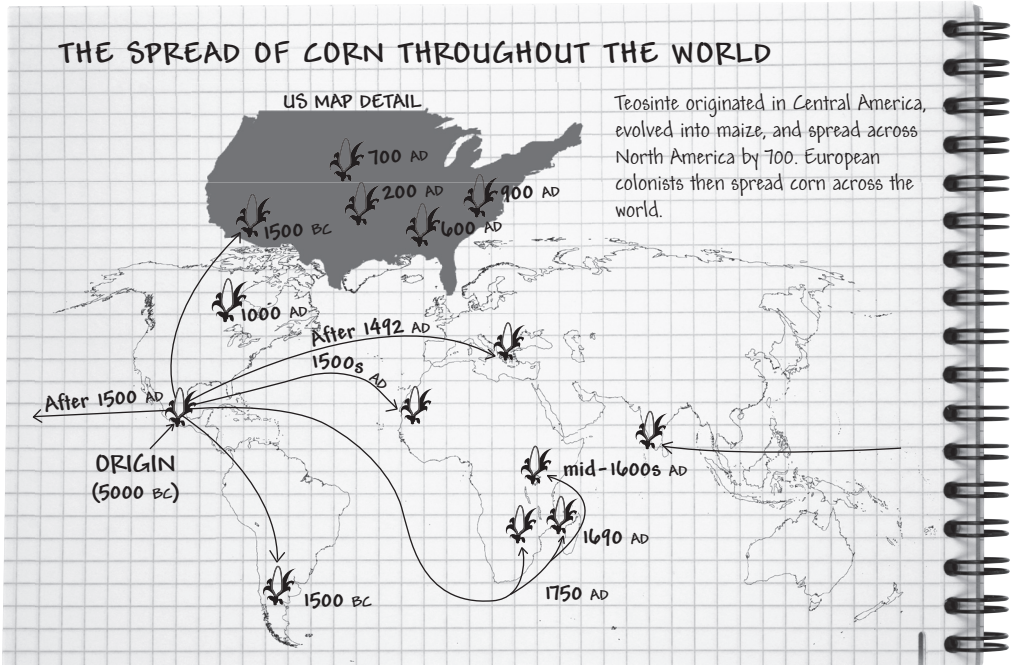 THE SPREAD OF CORN THROUGHOUT THE WORLD
US MAP DETAIL
Teosinte originated in Central America,
evolved into maize, and spread across
North America by 700. European
colonists then spread corn across the
world.
700 AD
200 AD
900 AD
600 AD
1500 BC
1000 AD
After 1492 AD
1500s AD
After 1500 AD
ORIGIN
(5000 BC)
mid-1600s AD
1690 AD
1750 AD
1500 BC